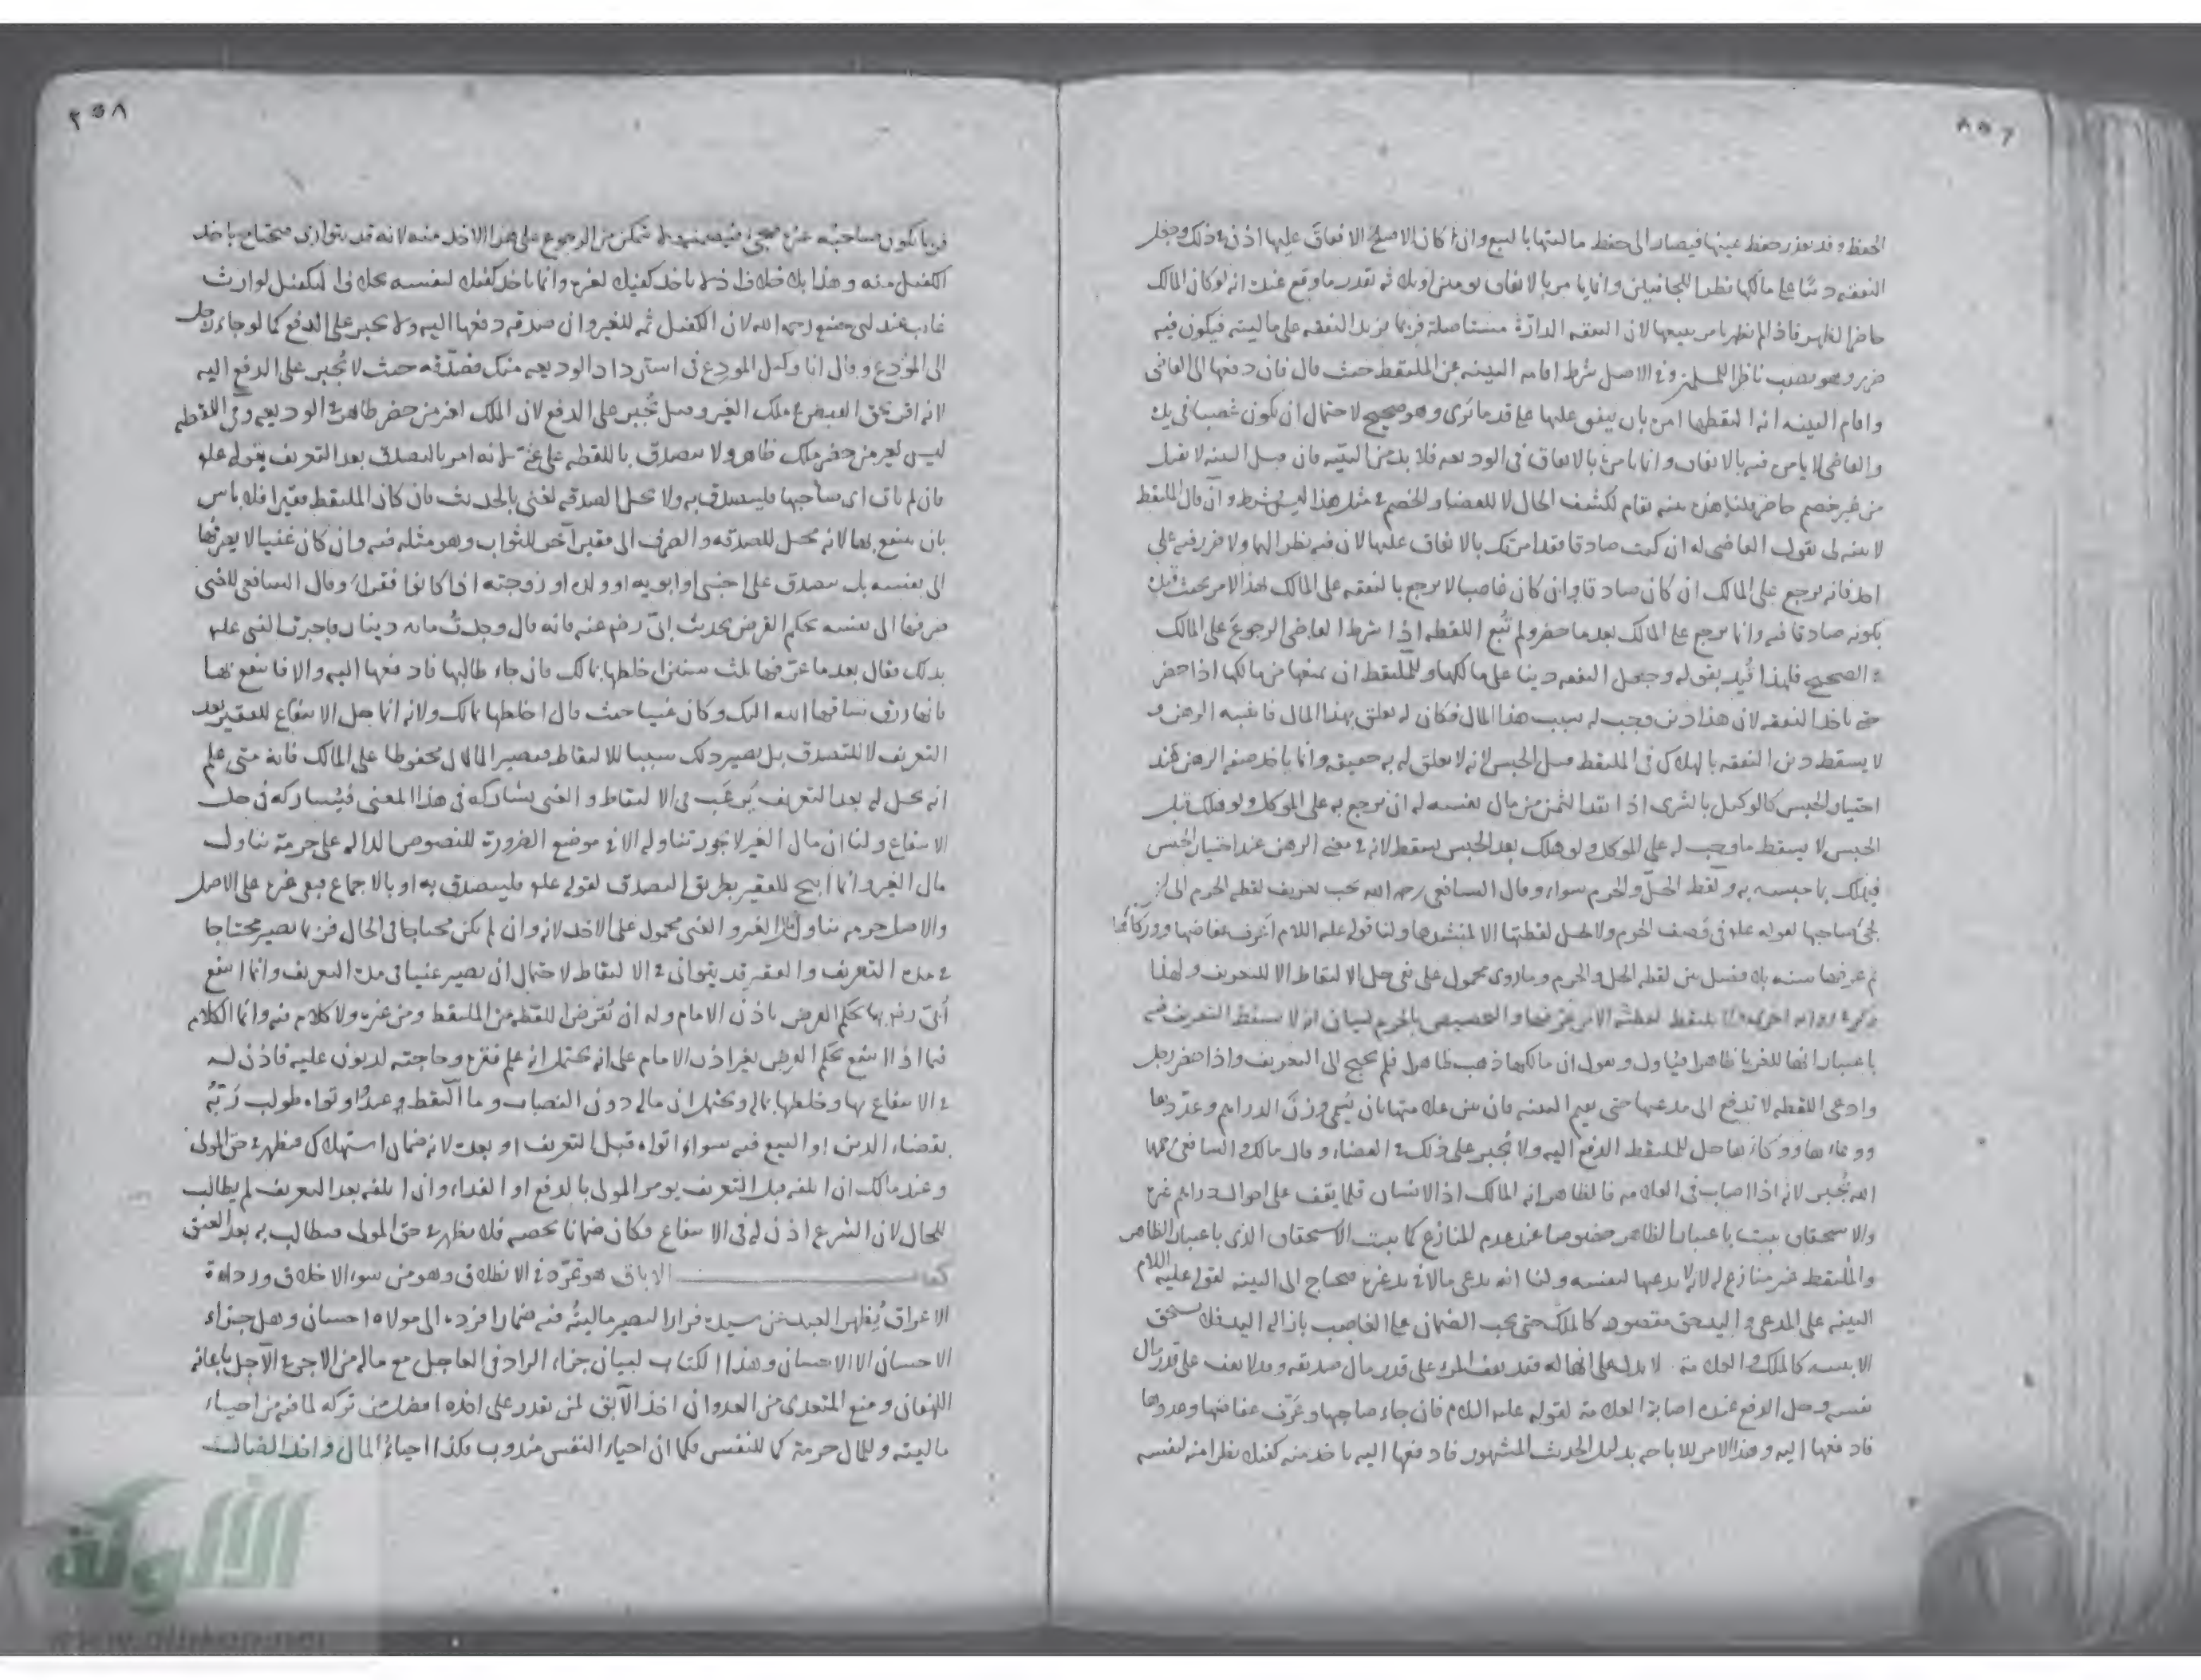 الحفظ وقد يعذر حفظ عينها فيصار الى حفظ ماليتها بالبيع وان كان الاصلح الانفاق عليها اذن في ذلك وجعل
النفقه دينا على مالكها نظرا للجانبين وانما يامر بالانفاق يومين او ثلثة قدر ما وقع عنده انه لو كان المالك
حاضرا لظهر فاذا لم يظهر يامر ببيعها لان النفقه الدارّة مستاصلة فربما يزيد النفقه على ماليته فيكون فيه
ضرر وهو نصب ناظرا للمسلمين وفي الاصل شرط اقامه البينه من الملتقط حيث قال فان دفعها الى القاضي
واقام البينه انه التقطها امره بان ينفق عليها على قدر ما يرى وهو صحيح لاحتمال ان يكون غصبا في يده
والقاضي لا يامر فيه بالانفاق وانما يامر بالانفاق في الوديعه فلا بد من البيّنه فان قيل البينه لا تقبل
من غير خصم حاضر قلنا هذه بينه تقام لكشف الحال لا للقضاء والخصم في مثل هذا ليس بشرط وان قال الملتقط
لا بينه لي يقول القاضي له ان كنت صادقا فقد امرتك بالانفاق عليها لان فيه نظر الهما ولا ضرر فيه على
احد فانه يرجع على المالك ان كان صادقا وان كان غاصبا لا يرجع بالنفقه على المالك بهذا الامر بحيث قيل
بكونه صادقا فيه وانما يرجع على المالك بعد ما حضر ولم تُبع اللقطه اذا شرط القاضي الرجوع على المالك
في الصحيح فلهذا قُيد بقوله وجعل النفقه دينا على مالكها وللملتقط ان يمنعها من مالكها اذا حضر
حتى ياخذ النفقه لان هذا دين وجب له بسبب هذا المال فكان له تعلق بهذا المال فاشبه الرهن و
لا يسقط دين النفقه بالهلاك في الملتقط قبل الحبس لانه لا تعلق له به حقيقه وانما ياخذ صفه الرهن عند
اختيار الحبس كالوكيل بالشرى اذا نقد الثمن من مال نفسه له ان يرجع به على الموكل ولو هلك قبل
الحبس لا يسقط ما وجب له على الموكل ولو هلك بعد الحبس يسقط لانه في معنى الرهن عند اختيار الحبس
فيهلك بما حبسه به ولقط الحلّ والحرم سواء وقال الشافعي رحمه الله يجب تعريف لقطه الحرم الى ان
يجئ صاحبها لقوله علم في وصف الحرم ولا يحل لقطتها الا لمنشدها ولنا قوله عليه السلام اعرف عفاصها ووكاءها
ثم عرفها سنه بلا فصل بين لقطه الحل والحرم وما روى محمول على نفي حل الالتقاط الا للتعريف ولهذا
باعتبار انها للغربا ظاهرا فيتاول ويقول ان مالكها ذهب ظاهرا فلم يحتج الى التعريف واذا حضر رجل
وادعى اللقطه لا تدفع الى مدعيها حتى يقيم البينه فان بين علامتها بان يسمّي وزنَ الدراهم وعددها
ووعاءها ووكاءها حل للملتقط الدفع اليه ولا يُجبر على ذلك في القضاء وقال مالك والشافعي رحمهما
الله يُجبر لانه اذا اصاب في العلامه فالظاهر انه المالك اذ الانسان قلما يقف على احوال دراهم غيره
والاستحقاق يثبت باعتبار الظاهر خصوصا عند عدم المنازع كما يثبت الاستحقاق الذي باعتبار الظاهر
والملتقط غير منازع له لانه لا يدعيها لنفسه ولنا انه يدعى مالا في يد غيره فيحتاج الى البينه لقوله عليه السلام
البينه على المدعي واليد حق مقصود كالملك حتى يجب الضمان على الغاصب بازاله اليد فلا يستحق
الا ببينه كالملك والعلامة لا يدل على انها له فقد يقف المرء على قدر مال صديقه وقد لا يقف على قدر مال
نفسه وحل الدفع عند اصابة العلامة لقوله عليه السلام فان جاء صاحبها وعَرّف عفاصها وعددها
فادفعها اليه وهذا الامر للاباحه بدليل الحديث المشهور فادفعها اليه ياخذ منه كفيلا نظرا منه لنفسه
٢٥٨
فربما يكون صاحبه غيره فيجئ فيضمنه ولا يتمكن من الرجوع على هذا الاخذ منه لانه قد يتوارى فيحتاج ياخذ
الكفيل منه وهذا بلا خلاف اذ لا ياخذ كفيلا لغيره وانما ياخذ كفيلا لنفسه بخلاف الكفيل لوارث
غائب عند ابي حنيفه رحمه الله لان الكفيل ثمه للغير وان صدقه دفعها اليه ولا يجبر على الدفع كما لو جاء رجل
الى المُودَع وقال انا وكيل المودِع في استرداد الوديعه منك فصدّقه حيث لا يُجبر على الدفع اليه
لانه اقر بحق القبض في ملك الغير وقيل يُجبر على الدفع لان الملك لغير من حضر ظاهر في الوديعه وفي اللقطه
ليس لغير من حضر ملك ظاهر ولا يتصدق باللقطه على غني لانه امر بالتصدق بعد التعريف بقوله علم
فان لم يات اي صاحبها فليتصدق به ولا يحل الصدقه لغني بالحديث فان كان الملتقط فقيرا فلا باس
بان ينتفع بها لانه محل للصدقه والصرف الى فقير آخر للثواب وهو مثله فيه وان كان غنيا لا يصرفها
الى نفسه بل يتصدق على اجنبي او ابويه او ولده او زوجته اذا كانوا فقراء وقال الشافعي للغني
صرفها الى نفسه بحكم القرض بحديث ابيّ رضي عنه فانه قال وجدتُ مائه دينار فاخبرت النبي علم
بذلك فقال بعد ما عرّفها ثلث سنين اخلطها بمالك فان جاء طالبها فادفعها اليه والا فانتفع بها
فانها رزق ساقها الله اليك وكان غنيا حيث قال اخلطها بمالك ولانه انما حل الانتفاع للفقير بعد
التعريف لا للتصدق بل يصير ذلك سببا للالتقاط فيصير المال محفوظا على المالك فانه متى علم
انه يحل له بعد التعريف يَرغَب في الالتقاط والغني يشاركه في هذا المعنى فيشاركه في حل
الانتفاع ولنا ان مال الغير لا يجوز تناوله الا في موضع الضرورة للنصوص الداله على حرمة تناول
مال الغير وانما ابيح للفقير بطريق التصدق لقوله علم فليتصدق به او بالاجماع فبقى غيره على الاصل
والاصل حرمه تناول مال الغير والغني محمول على الاخذ لانه وان لم يكن محتاجا في الحال فربما يصير محتاجا
في مدة التعريف والفقير قد يتوانى في الالتقاط لاحتمال ان يصير غنيا في مدة التعريف وانما انتفع
اُبَيّ رضي بها بحكم القرض باذن الامام وله ان يُقرض اللقطه من الملتقط ومن غيره ولا كلام فيه وانما الكلام
فيما اذا انتفع بحكم القرض بغير اذن الامام على انه يحتمل انه علم فقره وحاجته لديون عليه فاذن له
في الانتفاع بها وخلطها بماله ويحتمل ان ماله دون النصاب وما التقط عبدٌ او تواه طولب رَبّه
بقضاء الدين او البيع فيه سواء اتواه قبل التعريف او بعده لانه ضمان استهلاك فيظهر في حق المولى
وعند مالك ان اتلفه قبل التعريف يومر المولى بالدفع او الفداء وان اتلفه بعد التعريف لم يطالب
للحال لان الشرع اذن له في الانتفاع فكان ضمانا يخصه فلا يظهر في حق المولى فيطالب به بعد العتق
كتاب الاباق هو تمرّد في الانطلاق وهو من سوء الاخلاق ورداءة
الاعراق يُظهر العبد عن سيده فرارا ليصير ماليتُه فيه ضمارا فرده الى مولاه احسان وهل جزاء
الاحسان الا الاحسان وهذا الكتاب لبيان جزاء الراد في العاجل مع ماله من الاجر في الآجل باعانه
اللهفان ومنع المتعدي من العدوان اخذ الآبق لمن يقدر على اخذه افضل من تركه لما فيه من احياء
ماليته وللمال حرمة كما للنفس فكما ان احياء النفس مندوب فكذا احياءُ المال واخذ الضالّ
الألوكة